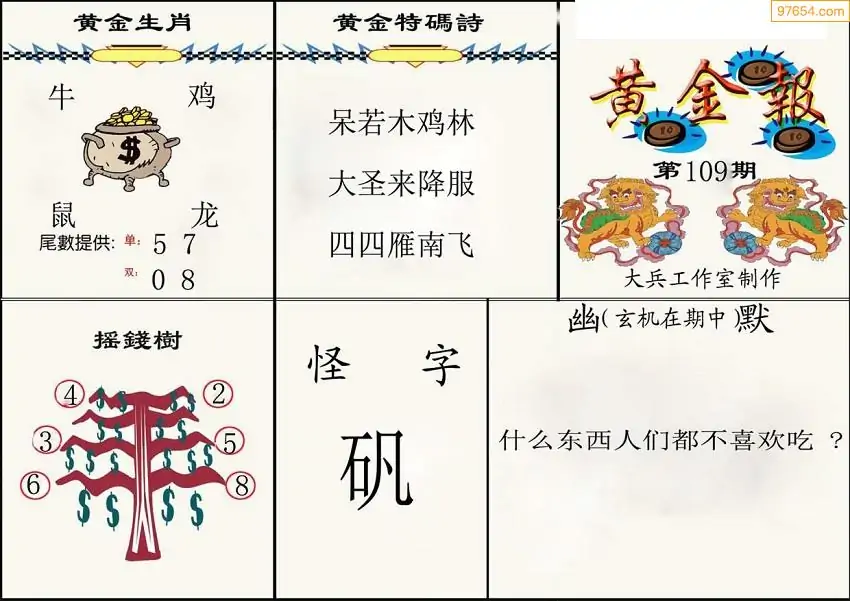 97654.com
黄金生肖
牛 鸡
$
鼠 龙
尾數提供: 单: 5 7
双: 0 8
黄金特碼詩
呆若木鸡林
大圣来降服
四四雁南飞
黄金報
10
10
10
第109期
大兵工作室制作
摇錢樹
④ ②
③ ⑤
⑥ ⑧
$ $ $ $
$ $ $ $
$ $ $ $
$ $ $ $
怪 字
矾
幽(玄机在期中)默
什么东西人们都不喜欢吃 ?